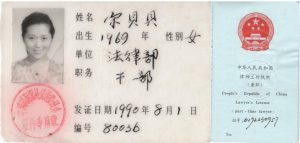 姓名 宗贝贝
出生 1969年 性别 女
单位 法律部
职务 干部
发证日期 1990年8月1日
编号 80036
中华人民共和国
律师工作执照
(兼职)
People's Republic of China
Lawyer's License
(part-time lawyer)
No.